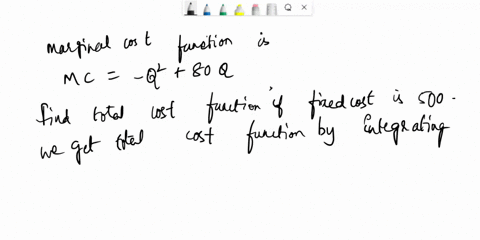 marginal cost function is
MC = -Q² + 80 Q
find total cost function if fixed cost is 500.
we get total cost function by Integrating